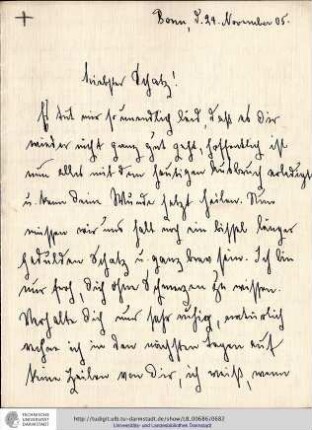 Bonn, d. 24. November 05.
Liebster Schatz!
Es tut mir so unendlich leid, daß es Dir
wieder nicht ganz gut geht, hoffentlich ist
nun alles mit dem heutigen Ausbruch erledigt
u. kann Deine Wunde jetzt heilen. Nun
müssen wir uns halt noch ein bissel länger
gedulden Schatz u. ganz brav sein. Ich bin
nur froh, Dich ohne Schmerzen zu wissen.
Verhalte Dich nur sehr ruhig, natürlich
rechne ich in den nächsten Tagen auf
keine Zeilen von Dir, ich weiß, wenn
TECHNISCHE UNIVERSITÄT DARMSTADT
http://tudigit.ulb.tu-darmstadt.de/show/cB_00686c0682
Universitäts- und Landesbibliothek Darmstadt